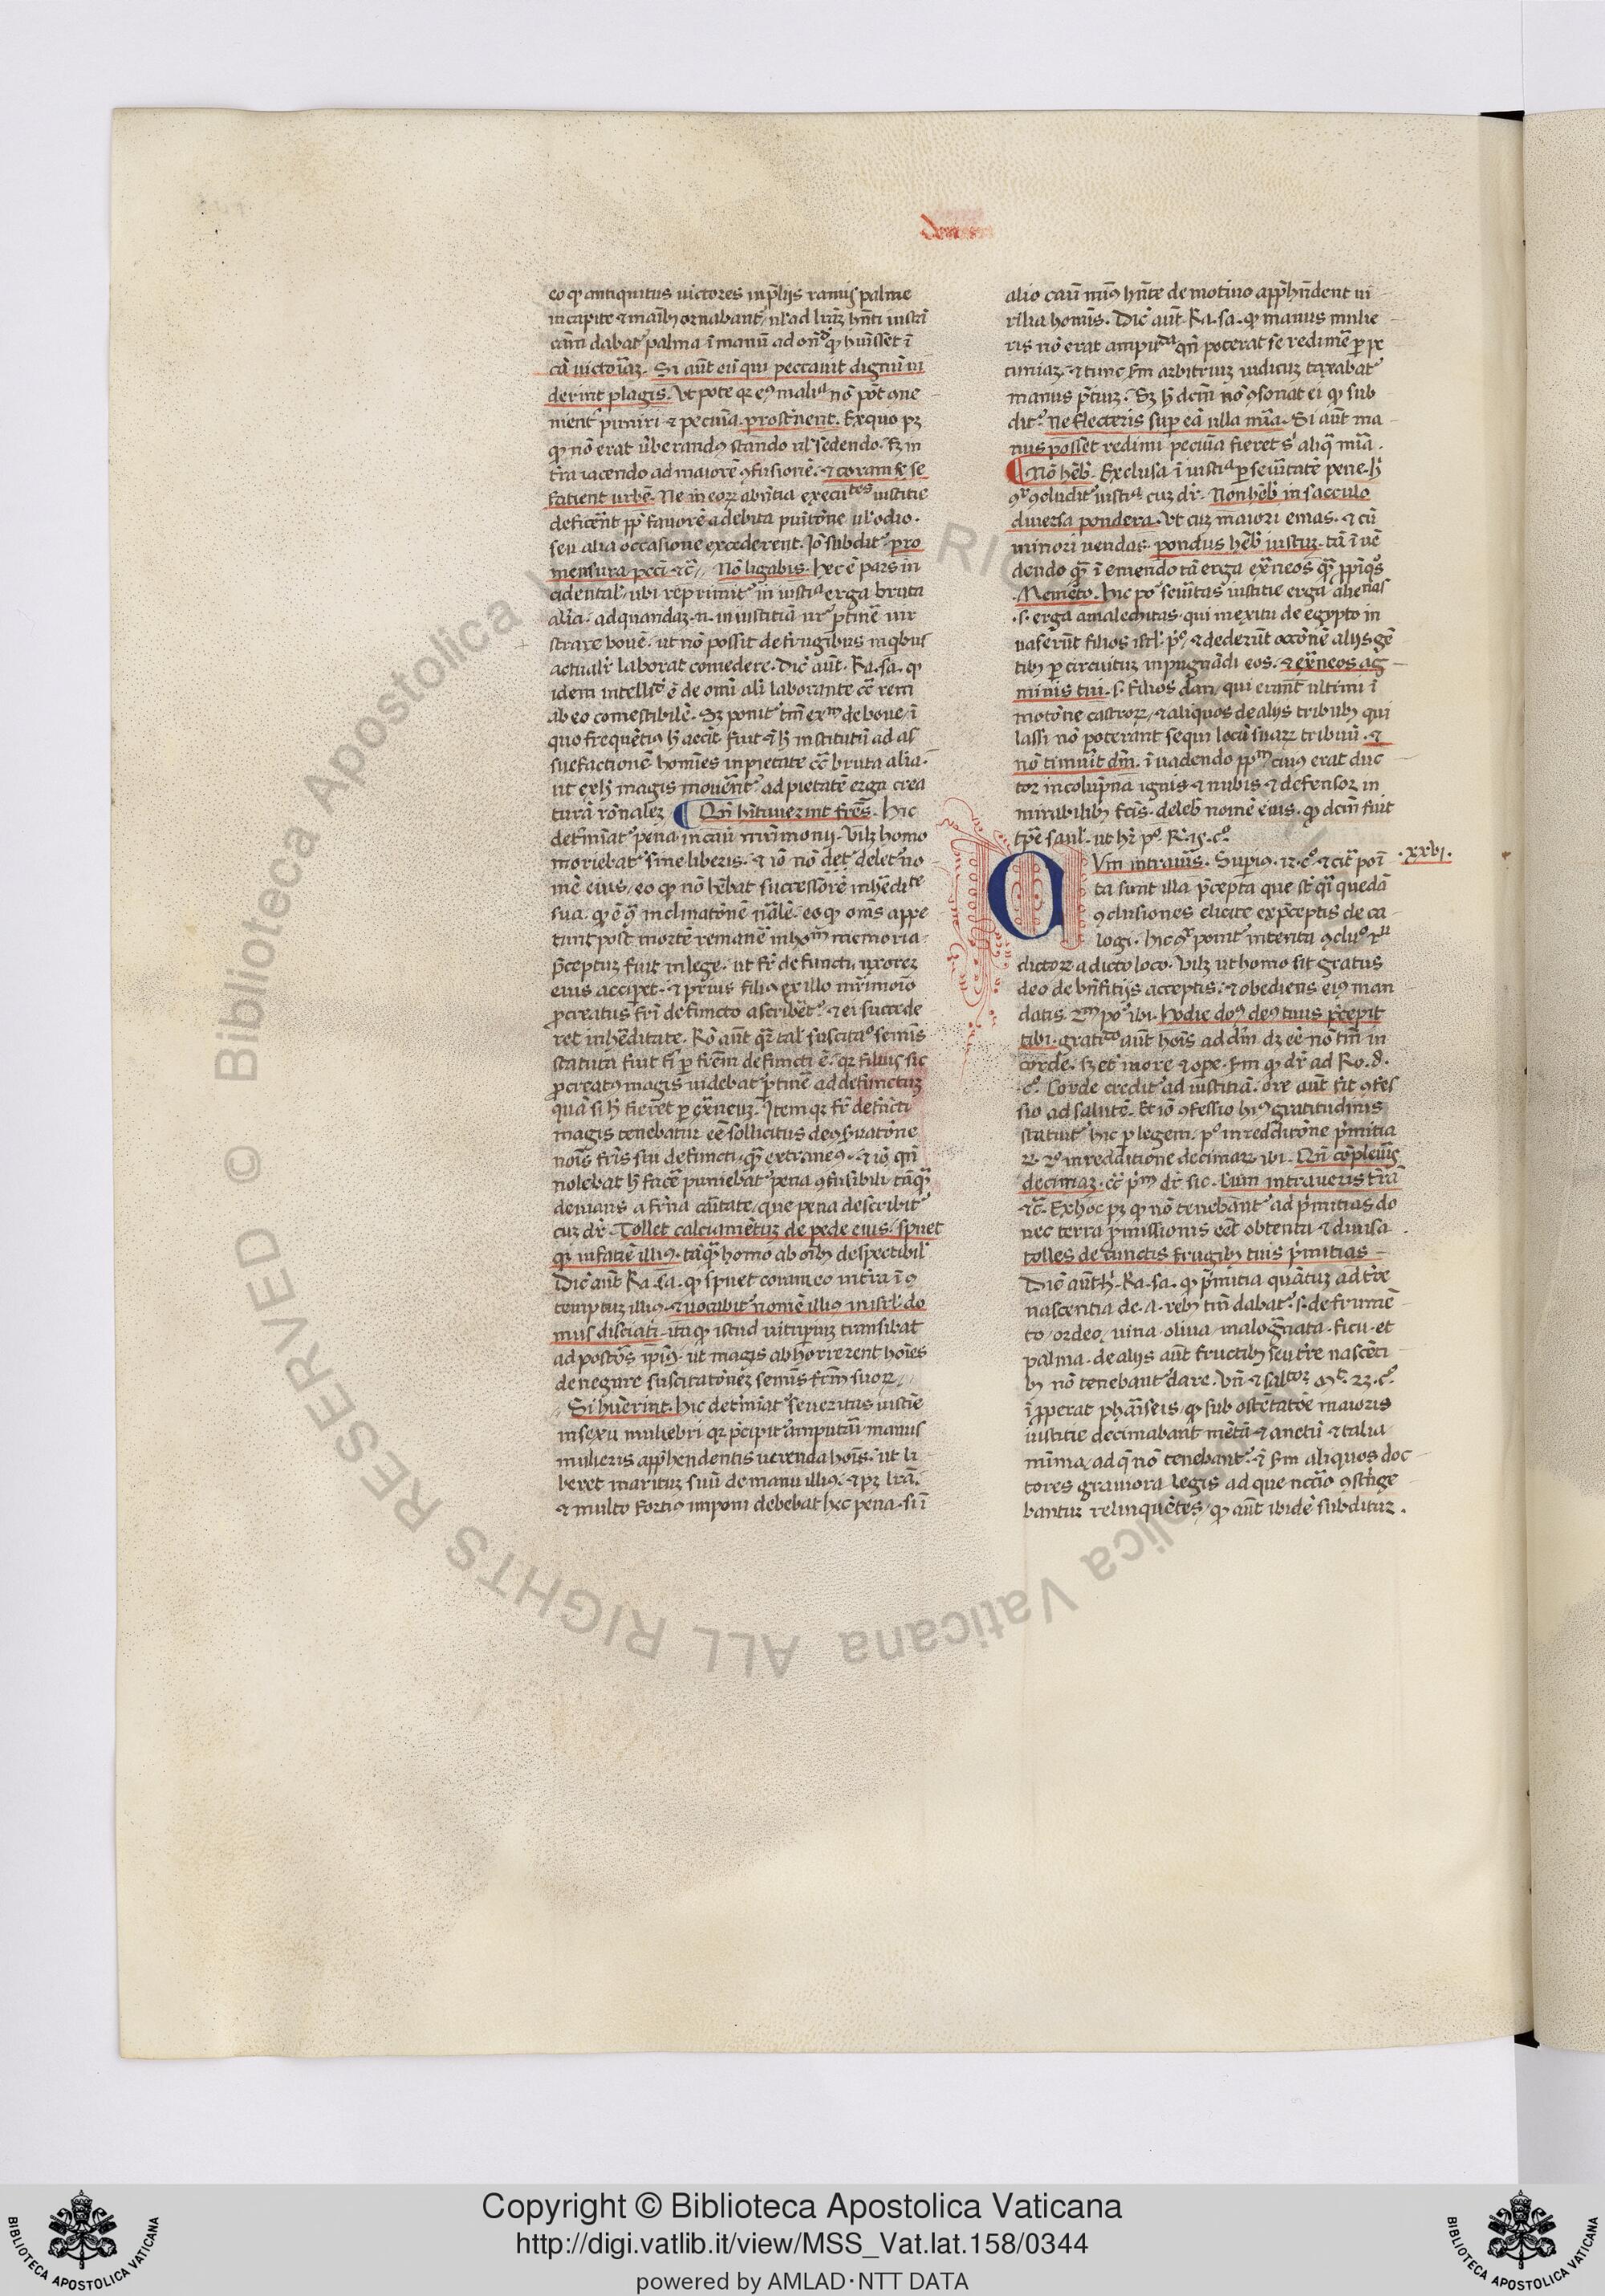 eo qꝫ antiquitus victores in p̄lijs ramis palme
in capite ⁊ maībꝫ ornabant᷑. vl᷑ ad lr̄am hn̄ti iustā
cām dabat᷑ palma ī manū ad on̄dꝫ qꝫ huisset ī
cā victoīaꝫ. Si aūt eū qui peccavit dignū vi
derint plagis. Ut pote qꝛ eꝰ malia nō pōt ꝯue
nient᷑ puniri ⁊ pecunia. prostn̄ent. Ex quo pꝫ
qꝫ nō erat v̄berandꝰ stando vl᷑ sedendo. sꝫ in
tr̄a iacendo ad maiorē ꝯfusionē. ⁊ coram se
facient v̄berari. Ne in eoꝝ abn̄tia executes iustitie
deficēnt pp̄ favorē a debita puītōne vl᷑ odio.
seu alia occasione excederent. Iō subdit᷑. pro
mensura pcc̄i ⁊c̄. Nō ligabis. hec ē pars in
cidental᷑. ubi reprimit᷑ iniustia erga bruta
alīa. ad quandaꝫ .n. iniustitiā vr̄ ptinē mr̄
strare bovē. ut nō possit de frugibus in qbus
actualr̄ laborat comedere. Dic̄ aūt Ra. sa. qꝫ
idem intelligd̄ ē de om̄i ali laborante cc̄ rem
ab eo comestibilē. Sꝫ ponit᷑ tm̄ exm de boue. ī
quo freqnētiꝰ h̄ accīt. fuit ⁊ h̄ institutū ad as
suefactionē homīes in pietate cc̄ bruta alīa.
ut ex h̄ magis movent᷑ ad pietatē erga crea
turā rōnalēꝫ ¶ Qn̄ hītaverint frēs. Hic
determīat᷑ pena in cāu mr̄imonij. Vlꝫ homo
moriebat᷑ sine liberis. ⁊ iō nō det᷑ delet᷑ no
mē eius. eo qꝫ nō hēbat successorē in hēdite
sua. qꝫ ē ꝯ̄ inclinatōnē nālē. eo qꝫ oms appe
tunt post mortē remanē in hom memoria.
p̄ceptuꝫ fuit in lege. ut fr̄ defuncti uxoreꝫ
eius acciperet. ⁊ p̄mus filiꝰ ex illo mr̄imoīo
pcreatus frī defuncto ascriberet᷑. ⁊ ei succede
ret in hēditate. Rō aūt qr̄e talꝫ suscitao semīs
statuta fuit fī p frēm defuncti ē. qꝛ filius sic
pcreatꝰ magis videbat᷑ ptinē ad defunctuꝫ
quā si h̄ fieret p ex̄neuꝫ. Item qꝛ fr̄ defūcti
magis tenebatur eē sollicitus de ꝯservatōne
noīs fr̄is sui defuncti. qꝫ extraneꝰ. ⁊ iō qn̄
nolebat h̄ facē puniebat᷑ pena ꝯfusibili tāqꝫ
devians a fr̄na cāritate. que pena describit᷑
cuꝫ dr̄. Tollet calciamētuꝫ de pede eius. spuet
qꝫ in faciē illiꝰ. tāqꝫ homo ab oībꝫ despectibil᷑
Dic̄ aūt Ra. sa. qꝫ spuet coram eo in tr̄a ī ꝯ
temptuꝫ illiꝰ. ⁊ vocabit᷑ nomē illiꝰ in isrl᷑ do
mus discalciati. ita qꝫ istud vitupiuꝫ transibat
ad postōs ip̄ius. ut magis abhorrerent hoīes
denegare suscitatōneꝫ semīs fr̄m suoꝝ.
Si huerint. hic determīat᷑ severitas iustīe
in sexu muliebri qꝛ p̄cipit᷑ amputari manus
mulieris app̄hendentis verenda hoīs. ut li
beret marituꝫ suū de manu illiꝰ. ⁊ pꝫ lr̄a.
⁊ multo fortiꝰ imponi debebat hec pena. si ī
alio cāu minꝰ hn̄te de motivo app̄hn̄dent vi
rilia homīs. Dic̄ aūt Ra. sa. qꝫ manus mulie
ris nō erat ampitda qn̄ poterat se redimē p pe
cuniaꝫ. ⁊ tunc sm̄ arbitriuꝫ iudicuꝫ taxabat᷑
manus p̄ciuꝫ. Sꝫ h̄ dcm̄ nō ꝯsonat ei qꝫ sub
dit᷑. Ne flecteris sup eā ulla mīa. Si aūt ma
nus posset redimi pecunia fieret s᷑ aliqꝫ mīa.
¶ Nō hēbis. Exclusa ī iustia p sev̄itatē pene. h̄
ꝯr̄ ꝯcludit᷑ iustia cuꝫ dr̄. Non hēbis in sacculo
diversa pondera. Ut cuꝫ maiori emas. ⁊ cū
minori vendas. pondus hēbis iustuꝫ. tā ī vē
dendo qꝫ ī emendo tā erga ex̄neos qꝫ ppīqꝰs
Memēto. hic po᷑ sev̄itas iustitie erga alienas
.s. erga amalechitas. qui in exitu de egypto in
vaserūt filios isrl᷑. pꝰ. ⁊ dederūt occōnē alijs gē
tibꝫ p circuituꝫ inpugnādi eos. ⁊ ex̄mos ag
minis tui. s. filios dan. qui erant ultimi ī
motōne castroꝝ. ⁊ aliquos de alijs tribubꝫ qui
lassi nō poterant sequi locū suaꝝ tribuū. ⁊
nō timuit dm̄. ī vadendo ppm̄ cuiꝰ erat duc
tor in colūpna ignis ⁊ nubis. ⁊ defensor in
mirabilibꝫ fc̄is. delebis nomē eius. qꝫ dcm̄ fuit
tpe saul᷑. ut hr̄ pꝰ R. 15. cº.
Um intraveris. Superiꝰ .12. cº. ⁊ cit̄ poī
.xxvj.
ta sunt illa p̄cepta que st̄ qī quedā
ꝯclusiones elicite ex p̄ceptis de ca
logi. hic ꝯr̄ ponit᷑ intenta ꝯcluo ru
dictoꝝ a dicto loco. Vlꝫ ut homo sit gratus
deo de bn̄fitijs acceptis. ⁊ obediens eiꝰ man
datis. 2m po᷑ ibi. Hodie doꝰ deꝰ tuus p̄cepit
tibi. gratito aūt hoīs ad dm̄ dꝫ eē nō tm̄ in
corde. sꝫ et᷑ in ore ⁊ ope. sm̄ qꝫ dr̄ ad Ro. 8.
.cº. Corde credit᷑ ad iustitiā. ore aūt fit ꝯfes
sio ad salutē. Et iō ꝯfessio hiꝰ gratitudinis
statuit᷑ hic p legem. pº in redditōne p̄mitia
ꝝ. 2º in redditione decimaꝝ ibi. Qn̄ cōpleveris
decimaꝫ. cc̄ p̄m dr̄ sic. Cum intraveris tr̄ā
⁊c̄. Ex hoc pꝫ qꝫ nō tenebant᷑ ad p̄mitias do
nec terra p̄missionis eēt obtenta ⁊ divisa.
tolles de cunctis frugibꝫ tuis p̄mitias
Dic̄ aūt h̄. Ra. sa. qꝫ p̄mitia quātuꝫ ad tr̄e
nascentia de .7. rebꝫ tm̄ dabat᷑. s. de frumē
to. ordeo. vina. oliva. malogranata. ficu. et
palma. de alijs aūt fructibꝫ seu tr̄e nascēti
bꝫ nō tenebant᷑ dare. Un̄ ⁊ saltor Mt. 23. cº.
īpperat phariseis. qꝫ sub ostētatōe maioris
iustitie decimabant mētā ⁊ anetū ⁊ talia
mīma. ad q̄ nō tenebant᷑. ⁊ sm̄ aliquos doc
tores graviora legis ad que nccīo ꝯstringe
bantur relinquētes. qꝫ aūt ibidē subditur.
Copyright © Biblioteca Apostolica Vaticana
http://digi.vatlib.it/view/MSS_Vat.lat.158/0344
powered by AMLAD·NTT DATA
BIBLIOTECA APOSTOLICA VATICANA
BIBLIOTECA APOSTOLICA VATICANA
© Biblioteca Apostolica Vaticana ALL RIGHTS RESERVED